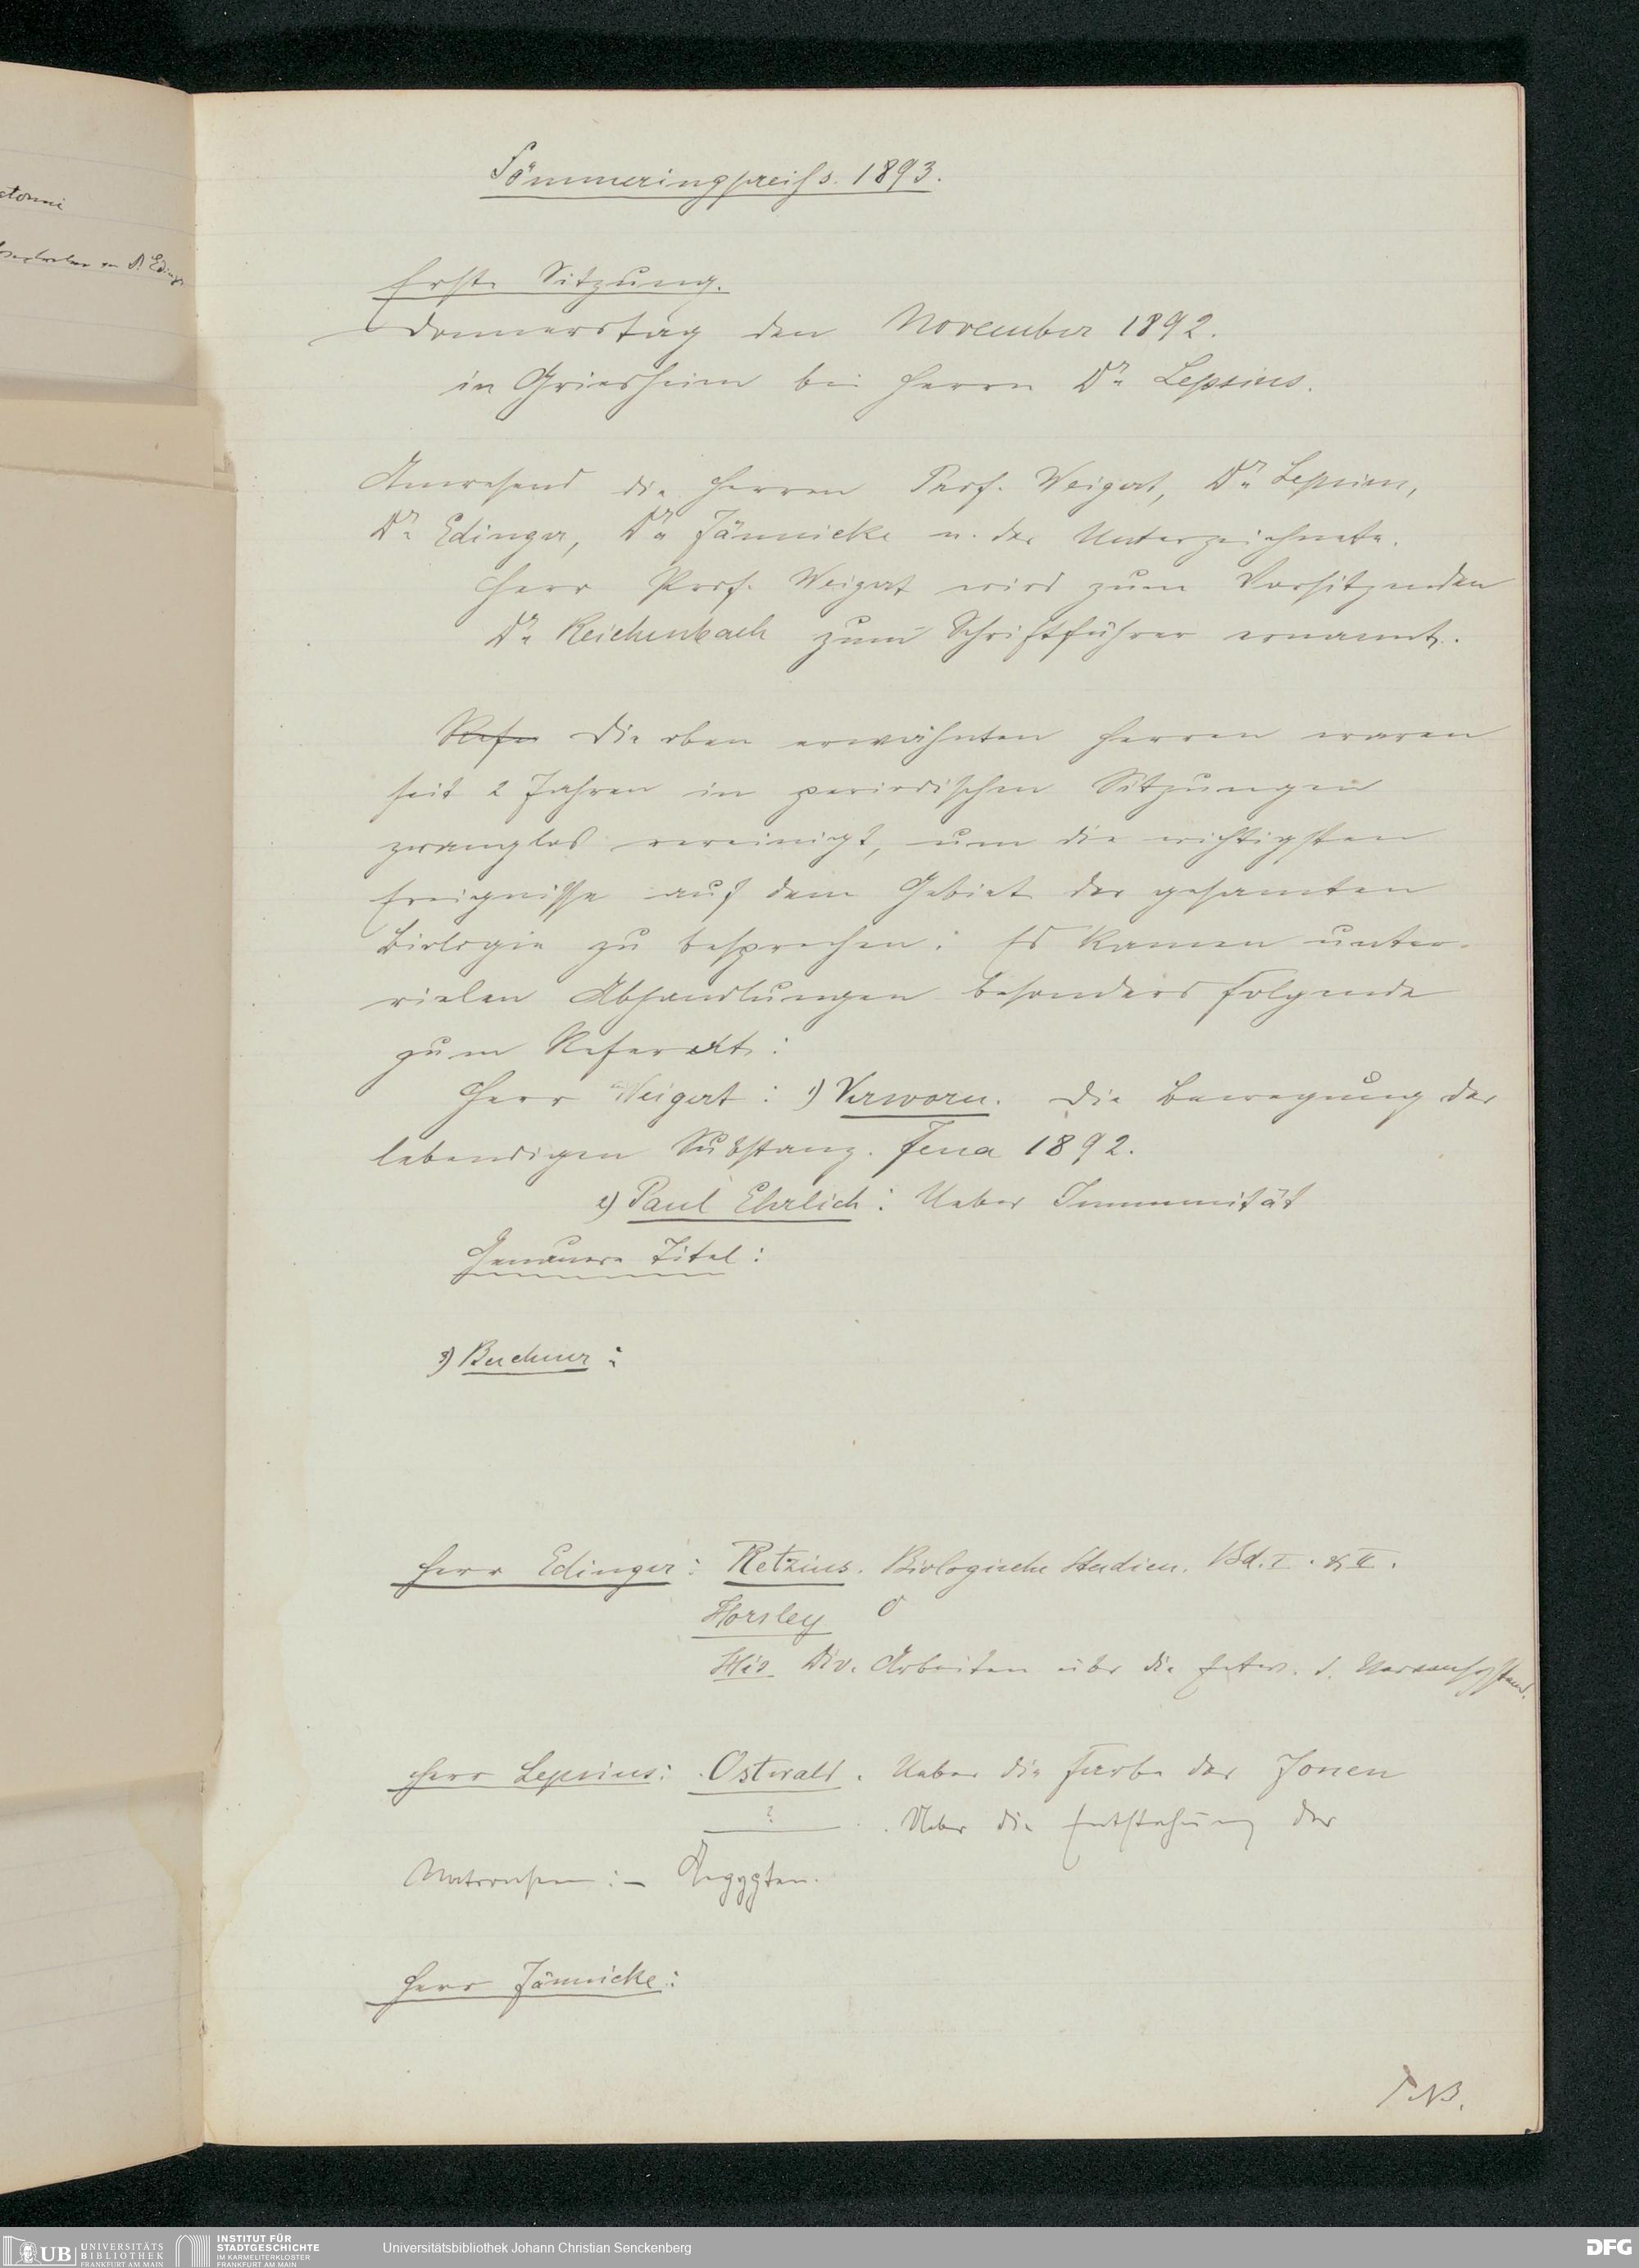 Sömmeringpreiss. 1893.
Erste Sitzung.
Donnerstag den November 1892.
in Griesheim bei Herrn Dr. Lepsius.
Anwesend die Herren Prof. Weigert, Dr. Lepsius,
Dr. Edinger, Dr. Jännicke u. der Unterzeichnete.
Herr Prof. Weigert wird zum Vorsitzenden
Dr. Reichenbach zum Schriftführer ernannt.
Refe Die oben erwähnten Herren waren
seit 2 Jahren in periodischen Sitzungen
zwanglos vereinigt, um die wichtigsten
Ereignisse auf dem Gebiet der gesamten
Biologie zu besprechen: Es kamen unter
vielen Abhandlungen besonders folgende
zum Referat:
Herr Weigert: 1) Verworn. Die Bewegung der
lebendigen Substanz. Jena 1892.
2) Paul Ehrlich: Ueber Immunität
Genauere Titel:
3) Buchner:
Herr Edinger: Retzius. Biologische Studien. Bd. I. & II.
Horsley
His. Div. Arbeiten über die Entw. d. Nervensystems.
Herr Lepsius: Ostwald. Ueber die Farbe der Jonen
? . Ueber die Entstehung der
Natronseen: – Aegypten.
Herr Jännicke:
ctomie
Dr. Edinger
UB UNIVERSITÄTS
BIBLIOTHEK
FRANKFURT AM MAIN
INSTITUT FÜR
STADTGESCHICHTE
IM KARMELITERKLOSTER
FRANKFURT AM MAIN
Universitätsbibliothek Johann Christian Senckenberg
DFG